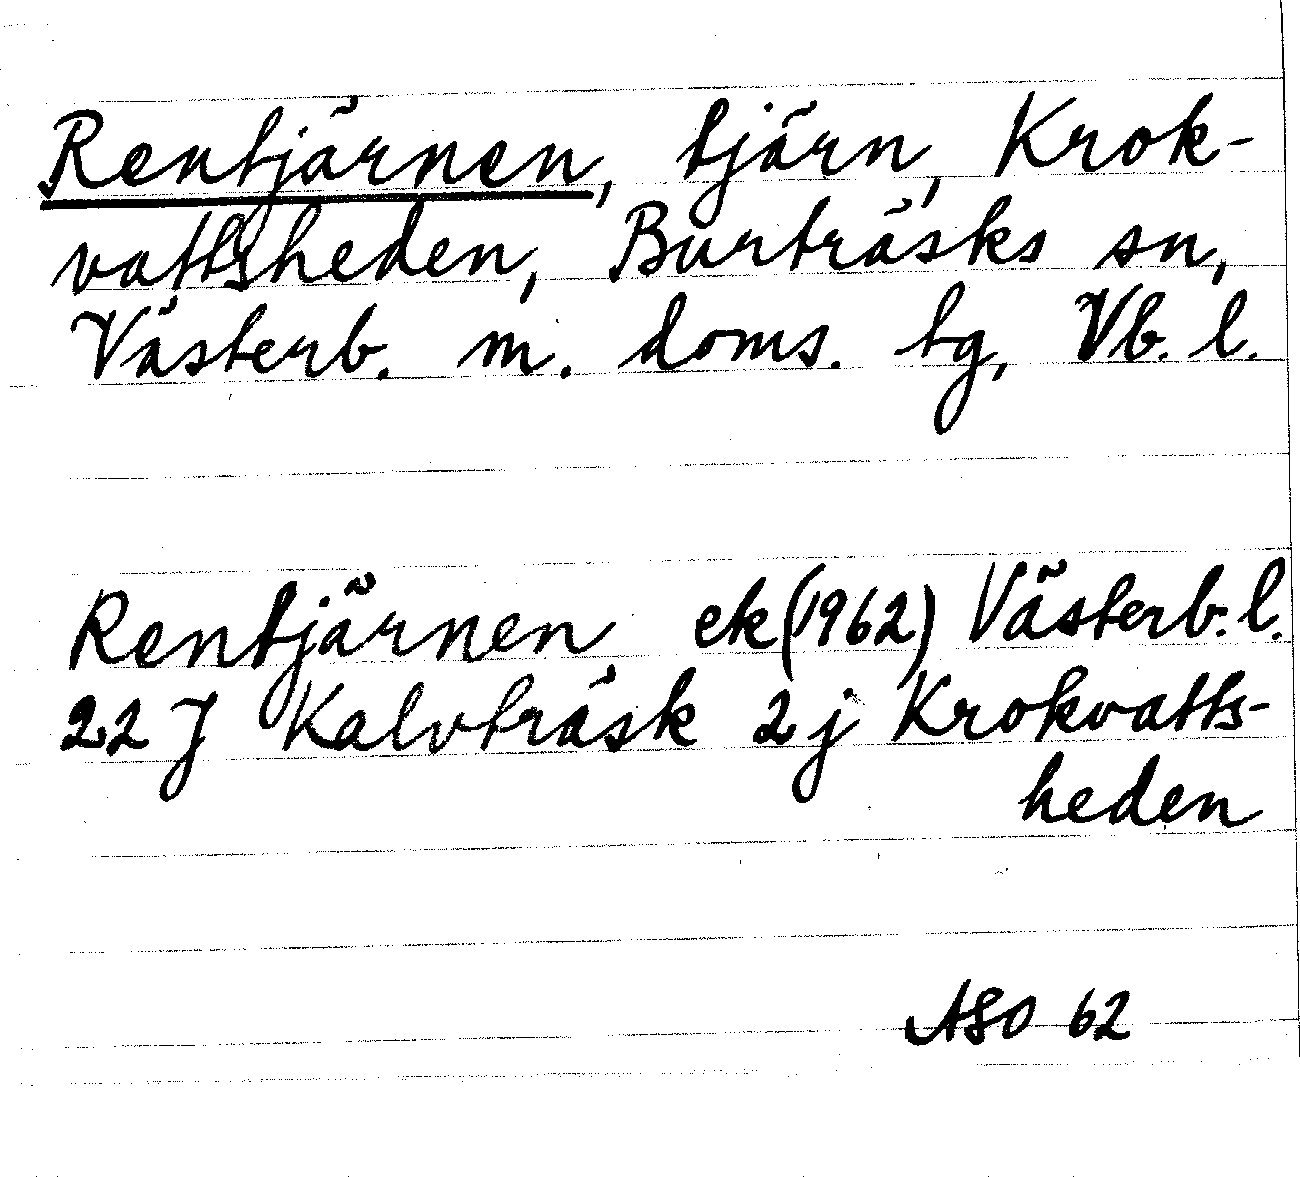 Rentjärnen, tjärn, Krok-
vattsheden, Burträsks sn,
Västerb. m. doms. tg, Vb. l.
Rentjärnen ek (1962) Västerb. l.
22 J Kalvträsk 2 j Krokvatts-
heden
ASO 62